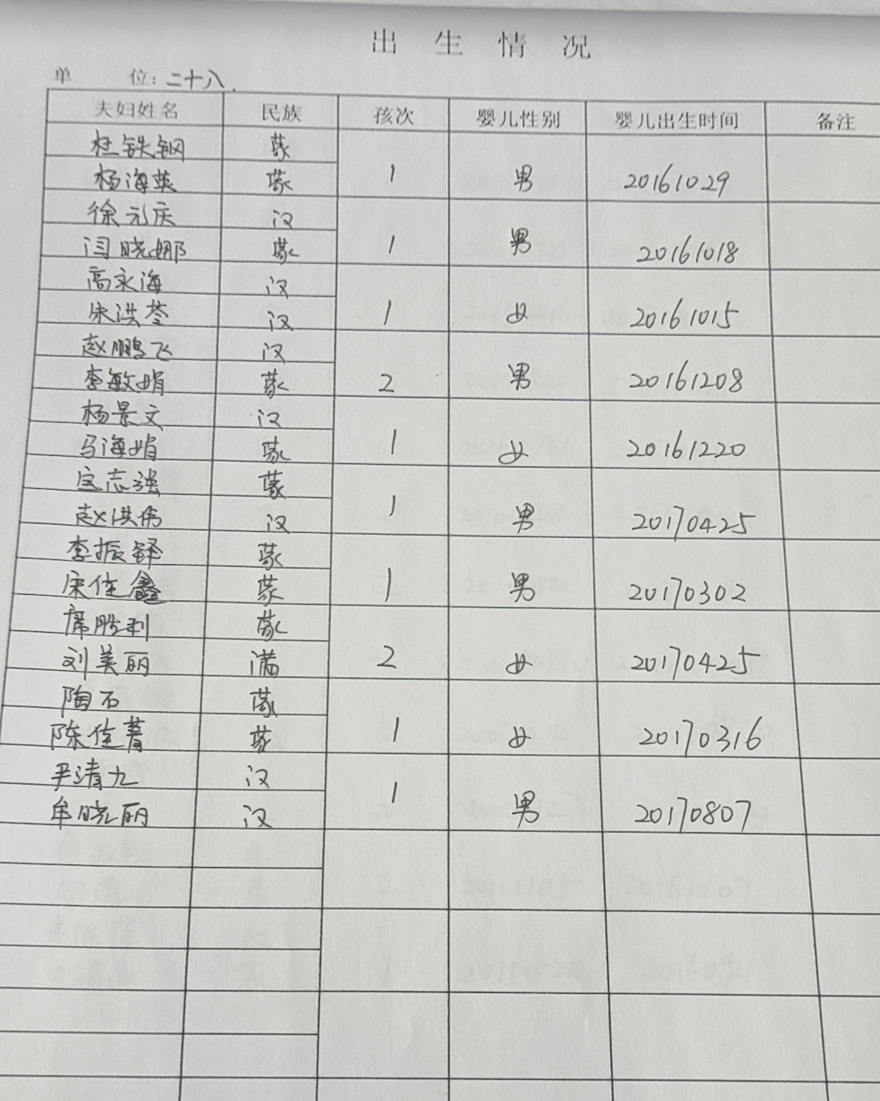 出生情况
单 位：二十八
夫妇姓名 民族 孩次 婴儿性别 婴儿出生时间 备注
杜铁钢 蒙
杨海英 蒙 1 男 20161029
徐元庆 汉
闫晓娜 蒙 1 男 20161018
高永海 汉
朱洪荃 汉 1 女 20161015
赵鹏飞 汉
李敏娟 蒙 2 男 20161208
杨景文 汉
马海娟 蒙 1 女 20161220
志强 蒙
赵洪伟 汉 1 男 20170425
李振铎 蒙
宋佳鑫 蒙 1 男 20170302
席胜利 蒙
刘美丽 满 2 女 20170425
陶石 蒙
陈佳 蒙 1 女 20170316
尹清九 汉
牟晓丽 汉 1 男 20170807